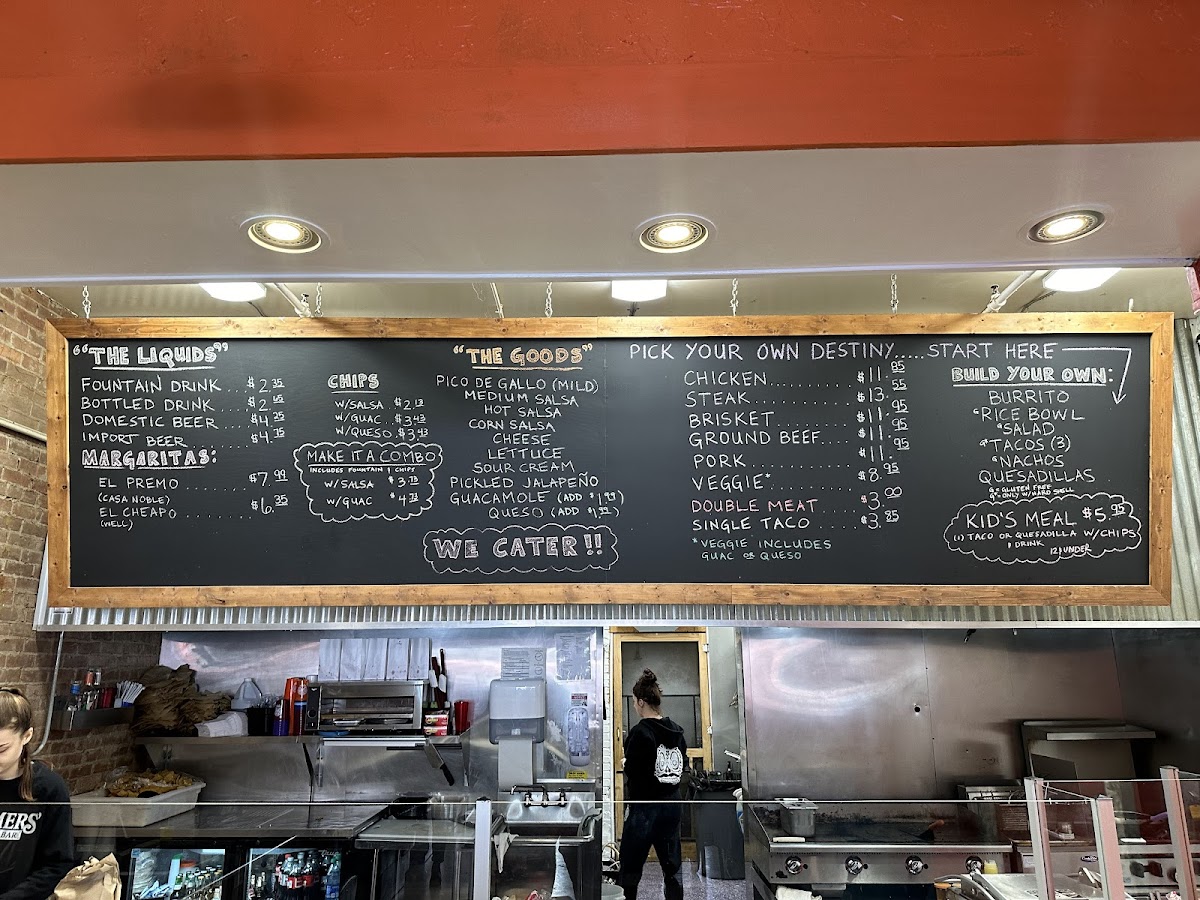 "THE LIQUIDS"
FOUNTAIN DRINK...$2.35
BOTTLED DRINK....$2.65
DOMESTIC BEER....$4.25
IMPORT BEER......$4.75
MARGARITAS:
EL PREMO.........$7.99
(CASA NOBLE)
EL CHEAPO........$6.35
(WELL)
CHIPS
W/SALSA $2.13
W/GUAC. $3.43
W/QUESO $3.43
MAKE IT A COMBO
INCLUDES FOUNTAIN & CHIPS
W/SALSA $3.75
W/GUAC $4.73
"THE GOODS"
PICO DE GALLO (MILD)
MEDIUM SALSA
HOT SALSA
CORN SALSA
CHEESE
LETTUCE
SOUR CREAM
PICKLED JALAPEÑO
GUACAMOLE (ADD $1.99)
QUESO (ADD $1.99)
WE CATER!!
PICK YOUR OWN DESTINY.....START HERE
CHICKEN..........$11.95
STEAK............$13.55
BRISKET..........$11.95
GROUND BEEF......$11.95
PORK.............$11.95
VEGGIE*..........$8.95
DOUBLE MEAT......$3.00
SINGLE TACO......$3.85
*VEGGIE INCLUDES
GUAC OR QUESO
BUILD YOUR OWN:
BURRITO
GRICE BOWL
GSALAD
G*TACOS (3)
GNACHOS
QUESADILLAS
G = GLUTEN FREE
G*=ONLY W/HARD SHELL
KID'S MEAL $5.95
(1) TACO OR QUESADILLA W/CHIPS
& DRINK
12 & UNDER
MERS'
BAR